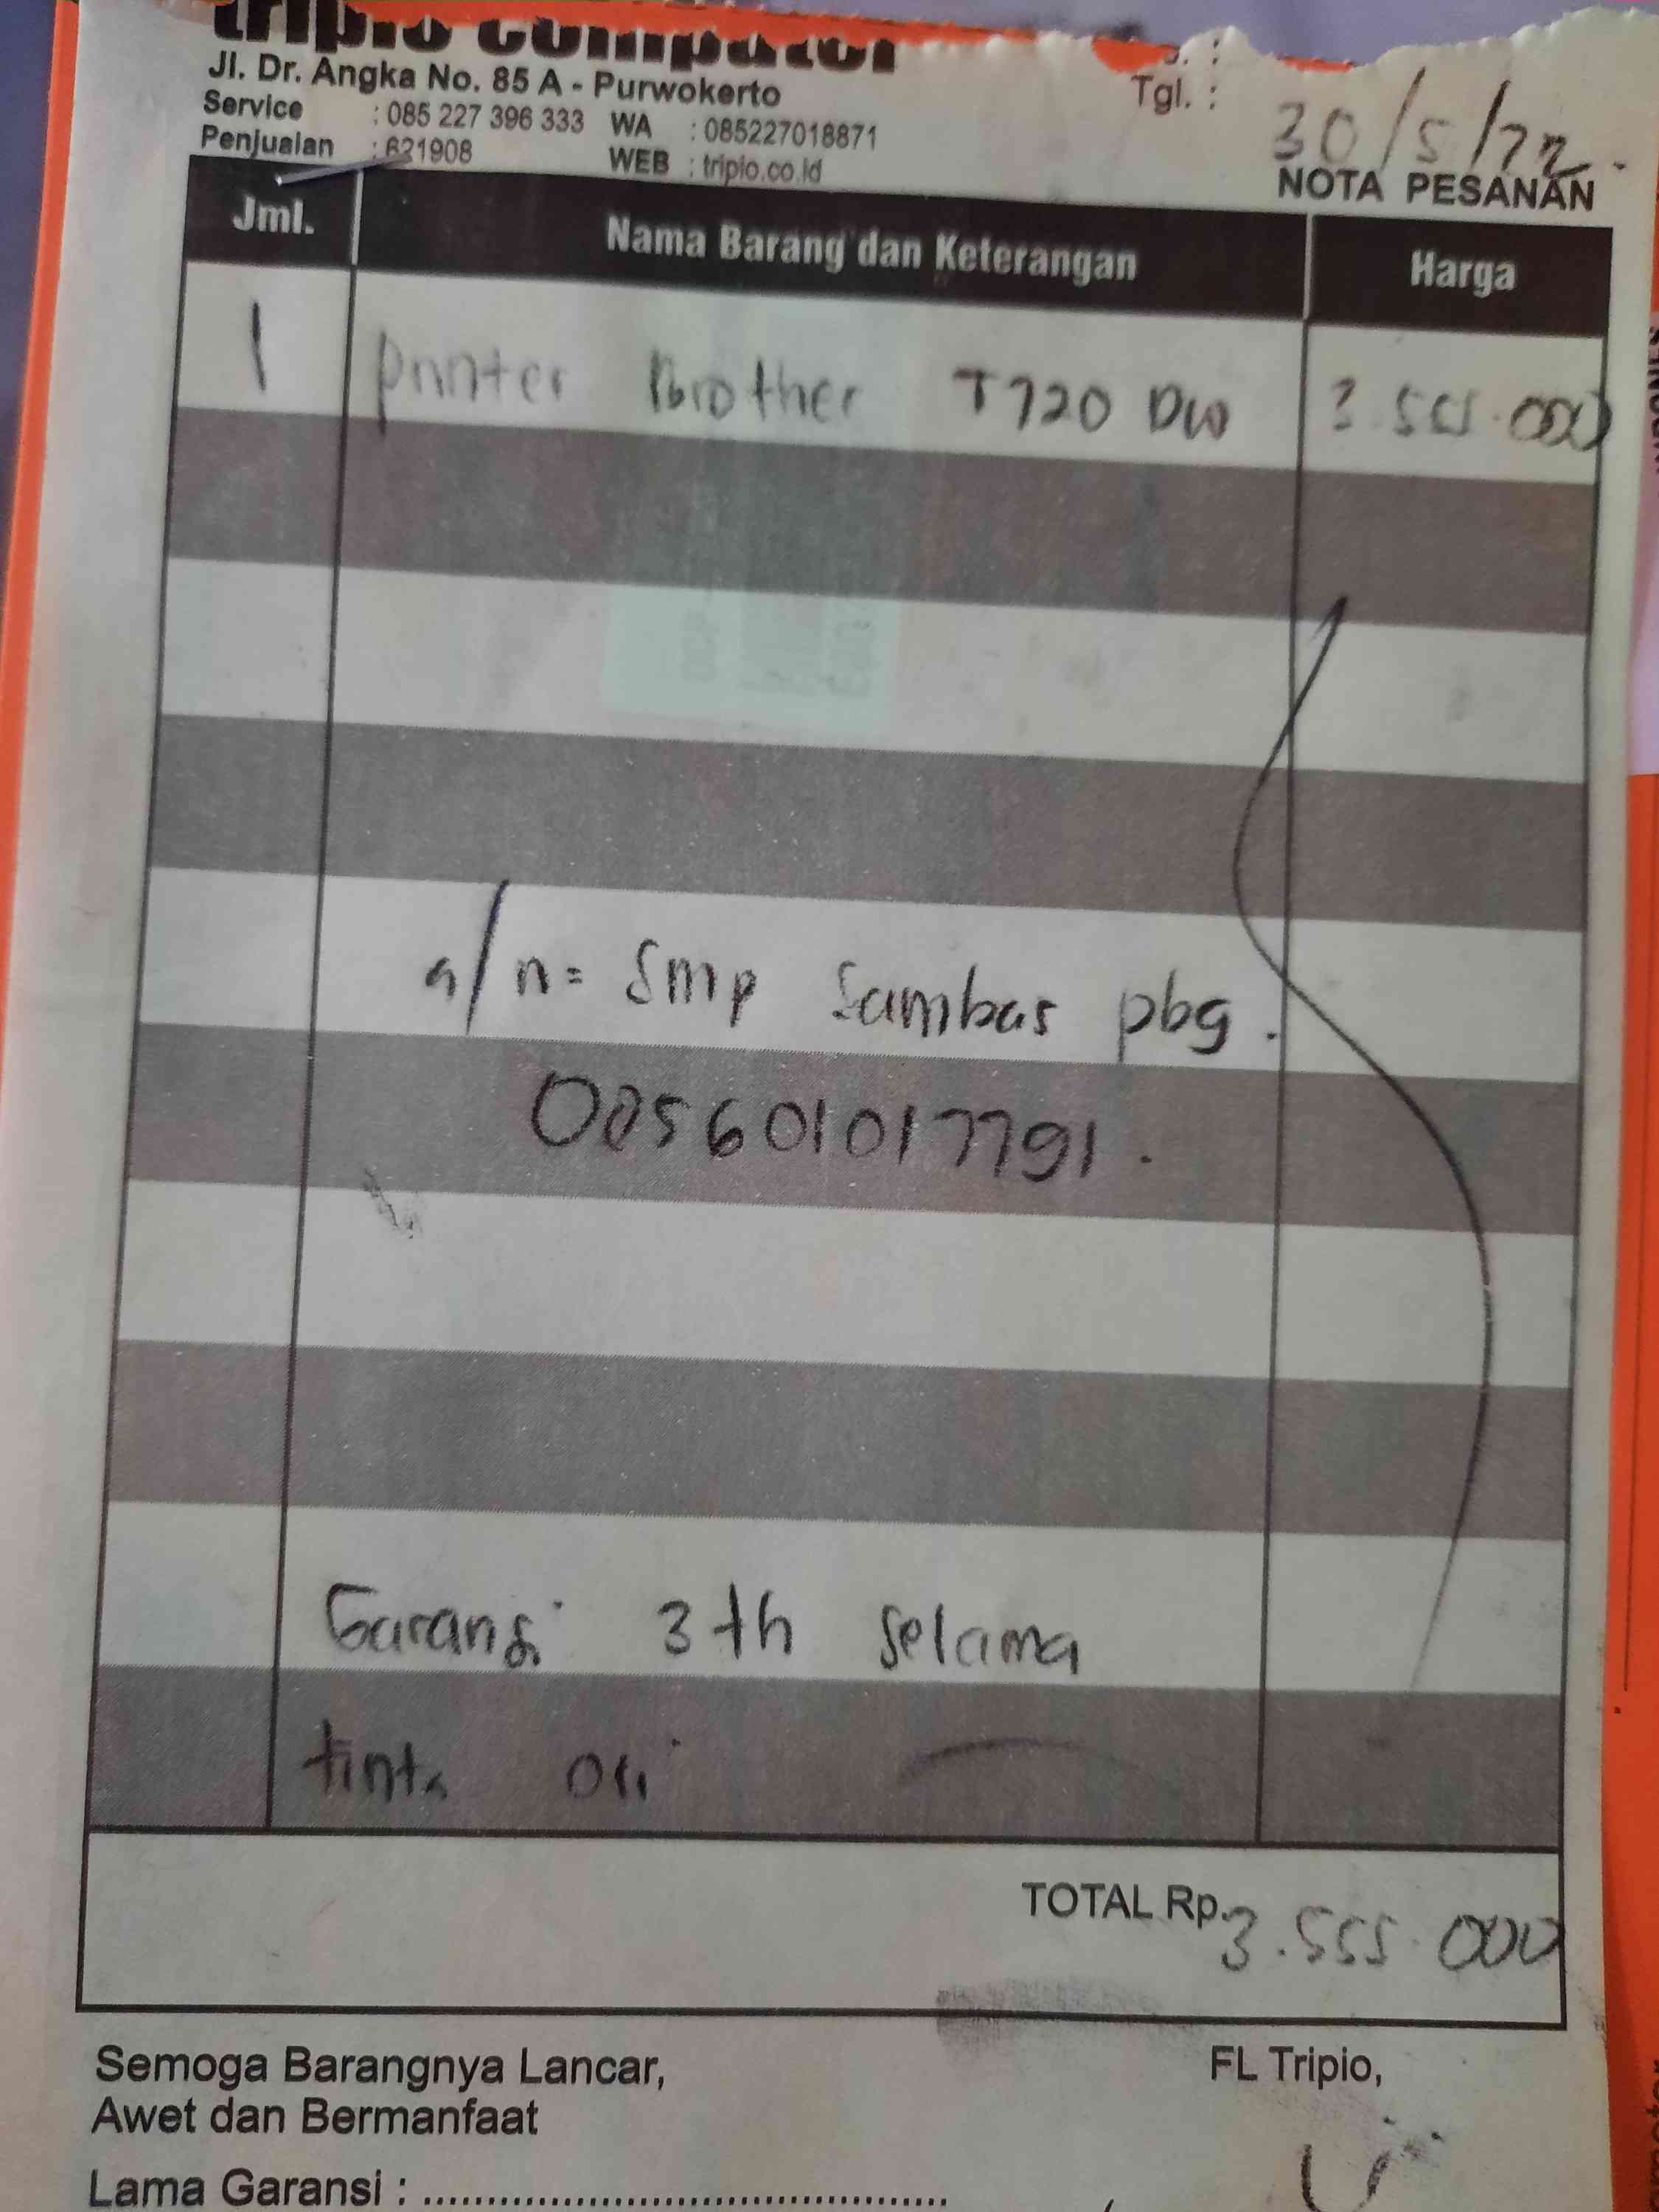 tripio computer
Jl. Dr. Angka No. 85 A - Purwokerto
Service : 085 227 396 333 WA : 085227018871
Penjualan : 621908 WEB : tripio.co.id
Tgl. : 30/5/22.
NOTA PESANAN
Jml. Nama Barang dan Keterangan Harga
1 printer Brother T720 DW 3.555.000
a/n = Smp Sambas pbg.
085601017791.
Garansi 3 th selama
tinta ori
TOTAL Rp. 3.555.000
Semoga Barangnya Lancar, FL Tripio,
Awet dan Bermanfaat
Lama Garansi : ........................................